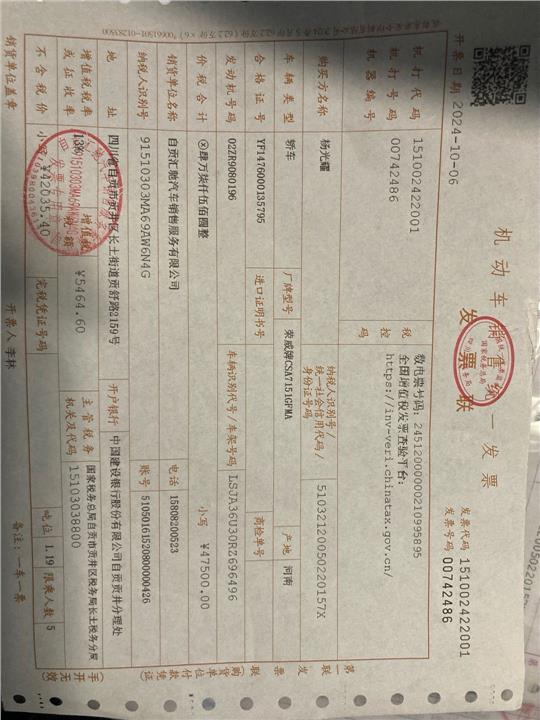 机动车销售统一发票
发票联
发票代码 151002422001
发票号码 00742486
开票日期 2024-10-06
机打代码 151002422001
机打号码 00742486
机器编号
税控码
数电票号码：24512000000210995895
全国增值税发票查验平台：
https://inv-veri.chinatax.gov.cn/
购买方名称 杨光耀
纳税人识别号/统一社会信用代码/身份证号码 51032120050220157X
车辆类型 轿车 厂牌型号 荣威牌CSA7151GFMA 产地 河南
合格证号 YFI476000135795 进口证明书号 商检单号
发动机号码 02ZR9080196 车辆识别代号/车架号码 LSJA36U30RZ696496
价税合计 ⊗肆万柒仟伍佰圆整 小写 ￥47500.00
销货单位名称 自贡汇驰汽车销售服务有限公司 电话 15808200523
纳税人识别号 91510303MA69AW6N4G 账号 51050161520800000426
地址 四川省自贡市贡井区长土街道贡舒路2159号 开户银行 中国建设银行股份有限公司自贡贡井分理处
增值税税率或征收率 13% 增值税税额 ￥5464.60 主管税务机关及代码 国家税务总局自贡市贡井区税务局长土税务分局
15103038800
不含税价 小写 ￥42035.40 完税凭证号码 吨位 1.19 限乘人数 5
销货单位盖章 开票人 李林 备注：一车一票
第一联 发票联（购货单位付款凭证）
（手开无效）
国家税务总局
发票专用章